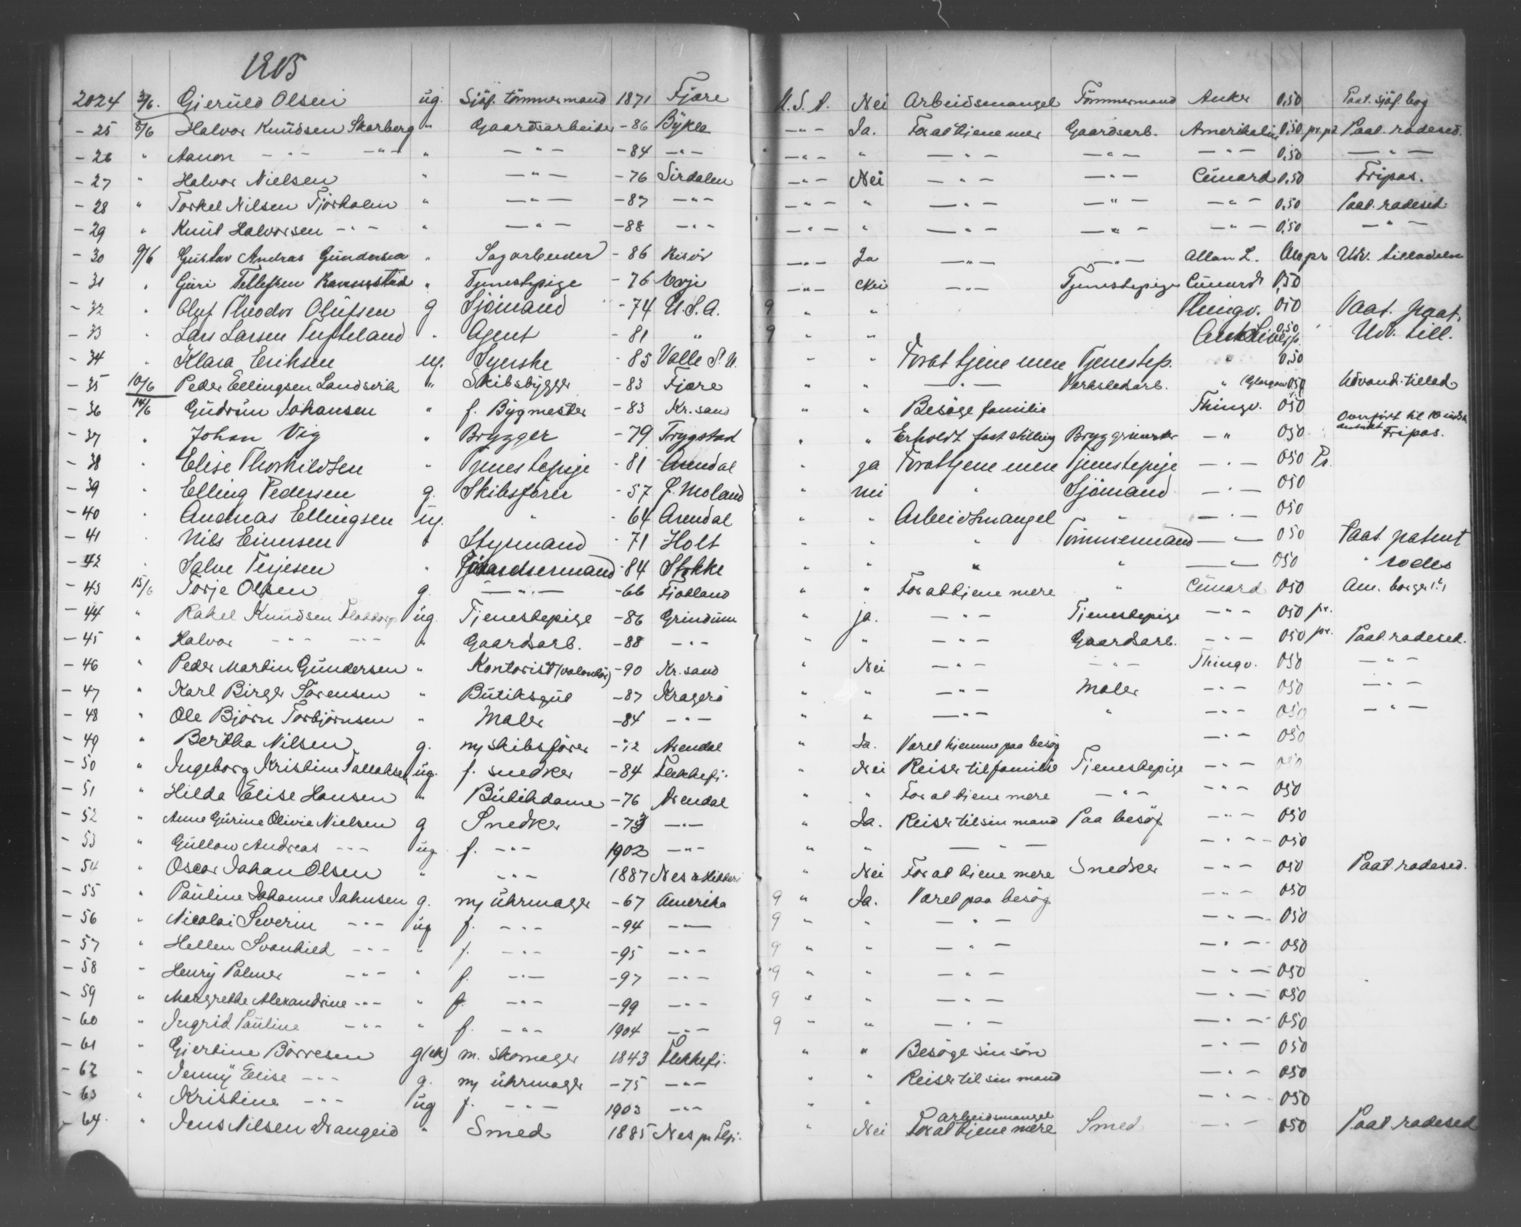 1905
2024 3/6. Gieruld Olsen ug. Sjöf. tömmermand 1871 Fjære U. S. A. Nei Arbeidsmangel Tömmermand Anker 0,50 Paat. sjöf. bog
- 25 8/6 Halvor Knudsen Skarberg " Gaardsarbeider - 86 Bykle -"- Ja. For at tjene mer Gaardsarb. Amerikalin 0,50 pr. pt Paat. radesed.
- 26 " Aanon -"- -"- " -"- - 84 -"- -"- " -"- -"- -"- 0,50 -"-
- 27 " Halvor Nielsen " -"- - 76 Sirdalen -"- Nei -"- -"- Cunard 0,50 Fripas.
- 28 " Torkel Nilsen Tjorhalen " -"- - 87 -"- -"- " -"- -"- -"- 0,50 Paat. radesed
- 29 " Knut Halvorsen -"- " -"- - 88 -"- -"- " -"- -"- -"- 0,50 -"-
- 30 9/6 Gustav Andras Gundersen " Sagarbeider - 86 Risör -"- Ja -"- Allan L. pr Udv. tilladelse
- 31 " Guri Tellefsen " Tjenestepige - 76 -"- Nei -"- Tjenestepige Cunard 0,50
- 32 " Oluf Theodor Olufsen g Sjömand - 74 U.S.A. 9 " " Thingv. 050 Paat. paat.
- 33 " Lars Larsen Tufteland " Agent - 81 " 9 " " 0,50 Udv. till.
- 34 " Klara Eriksen ug. Syerske - 85 Valle S. A. " " For at tjene mere Tjenestep. " 0,50
- 35 10/6 Peder Ellingsen Landsvik " Skibsbygger - 83 Fjære " " -"- Verkstedarb. " Glasgow 050 Udvand. tillad
- 36 14/6 Gudrun Johansen " f. Bygmester - 83 Kr.sand " " Besöge familie Thingv. 050 Overfört til
- 37 " Johan Vig " Brygger - 79 Trygstad " " Erholdt fast stilling -"- 050 Fripas.
- 38 " Elise Thorkildsen " Tjenestepige - 81 Arendal " ja For at tjene mere Tjenestepige -"- 050 Pr.
- 39 " Elling Pedersen g. Skibsförer - 57 Ö. Moland " nei " Sjömand -"- 050
- 40 " Andreas Ellingsen ug. " 64 Arendal " " Arbeidsmangel " -"- 050
- 41 " Nils Einersen " Styrmand - 71 Holt " " " Tömmermand -"- 050 Paat. patent
- 42 " Salve Terjesen " Tömmermand - 84 Stokke " " " " -"- 050 " rodes
- 43 15/6 Torje Olsen g. -"- - 66 Fjotland " " For at tjene mere " Cunard 050 Am. borger
- 44 " Rakel Knudsen ug Tjenestepige - 86 Grindum " ja. -"- Tjenestepige -"- 050 pr.
- 45 " Halvor -"- -"- " Gaardsarb. - 88 -"- " " -"- Gaardsarb. -"- 050 pr. Paat radesed.
- 46 " Peder Martin Gundersen " Kontorist (volontör) - 90 Kr. sand " Nei -"- -"- Thingv. 050 -"-
- 47 " Karl Birger Sørensen " Butiksgut - 87 Kragerö " " -"- Maler -"- 050 -"-
- 48 " Ole Bjørn Torbjørnsen " Maler - 84 -"- " " -"- " -"- 050 -"-
- 49 " Bertha Nilsen g. m/ skibsförer - 72 Arendal " Ja. Været hjemme paa besög -"- 050
- 50 " Ingeborg Kristine ug. f. snedker - 84 Flekkefj. " Nei Reiser til familie Tjenestepige -"- 050
- 51 " Hilda Elise Hansen " Butikdame - 76 Arendal " " For at tjene mere -"- -"- 050
- 52 " Anne Gurine Olivie Nielsen g Snedker - 73 -"- " Ja. Reiser til sin mand Paa besög -"- 050
- 53 " Andreas -"- ug. f. -"- 1902 -"- " " -"- -"- 050
- 54 " Oscar Johan Olsen " -"- 1887 Nes " Nei For at tjene mere Snedker -"- 050 Paat radesed.
- 55 " Pauline Johanne Johnsen g. m/ uhrmager - 67 Amerika 9 " Ja. Været paa besög -"- 050
- 56 " Nicolai Severin -"- ug f. -"- - 94 -"- 9 " " -"- -"- 050
- 57 " Hellen Svanhild -"- " f. -"- - 95 -"- 9 " " -"- -"- 050
- 58 " Henry Palmer -"- " f. -"- - 97 -"- 9 " " -"- -"- 050
- 59 " Margrethe Alexandrine -"- " f. -"- - 99 -"- 9 " " -"- -"- 050
- 60 " Ingrid Pauline -"- " f. -"- 1904 -"- 9 " " -"- -"- 050
- 61 " Giertine Börresen g(ek) m. skomager 1843 Flekkefj. " " Besöge sin sön -"- 050
- 62 " Jenny Elise -"- g. m/ uhrmager - 75 -"- " " Reiser til sin mand -"- 050
- 63 " Kristine -"- ug f. -"- 1903 -"- " " -"- 050
- 64. " Jens Nilsen Drangeid " Smed 1885 Nes pr Flfj. " Nei arbeidsmangel For at tjene mere Smed -"- 050 Paat radesed